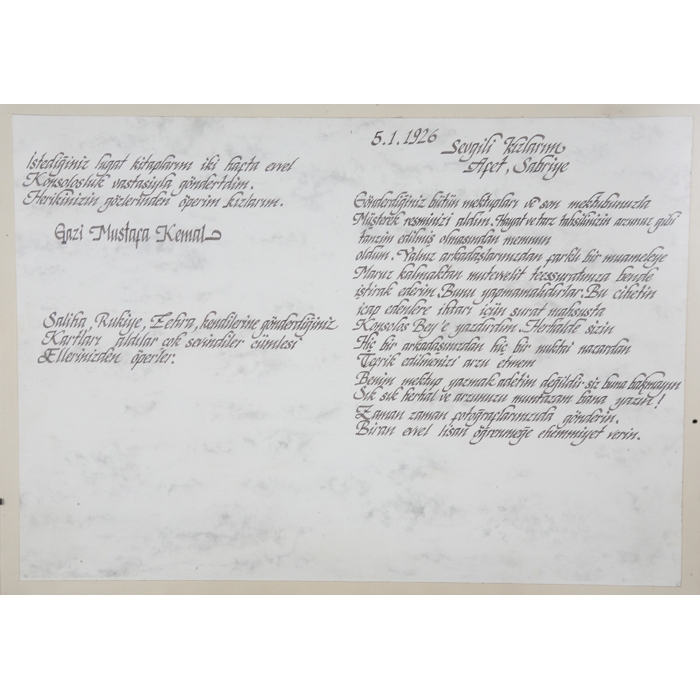 5.1.1926
Sevgili Kızlarım
Afet, Sabriye
Gönderdiğiniz bütün mektupları ve son mektubunuzla
Müşterek resminizi aldım. Hayat ve tarz tahsilinizin arzunuz gibi
tanzim edilmiş olmasından memnun
oldum. Yalnız arkadaşlarınızdan farklı bir muameleye
Maruz kalmaktan mütevelit bende
iştirak ederim. Bunu yapmamalıdırlar. Bu cihetin
icap edenlere ihtarı için surat mahsusta
Konsolos Bey'e yazdırdım. Herhalde sizin
Hiç bir arkadaşınızdan hiç bir noktai nazardan
Tefrik edilmenizi arzu etmem
Benim mektup yazmak adetim değildir siz buna bakmayın
Sık sık herhal ve arzunuzu muntazam bana yazın!
Zaman zaman fotoğraflarınızıda gönderin.
Biran evvel lisan öğrenmeğe ehemmiyet verin.
İstediğiniz lugat kitaplarını iki hafta evvel
Konsolosluk vastasıyla gönderttdim.
Herikinizin gözlerinden öperim kızlarım.
Gazi Mustafa Kemal
Saliha, Rukiye, Zehra, kendilerine gönderdiğiniz
Kartları aldılar çok sevindiler cümlesi
Ellerinizden öperler.